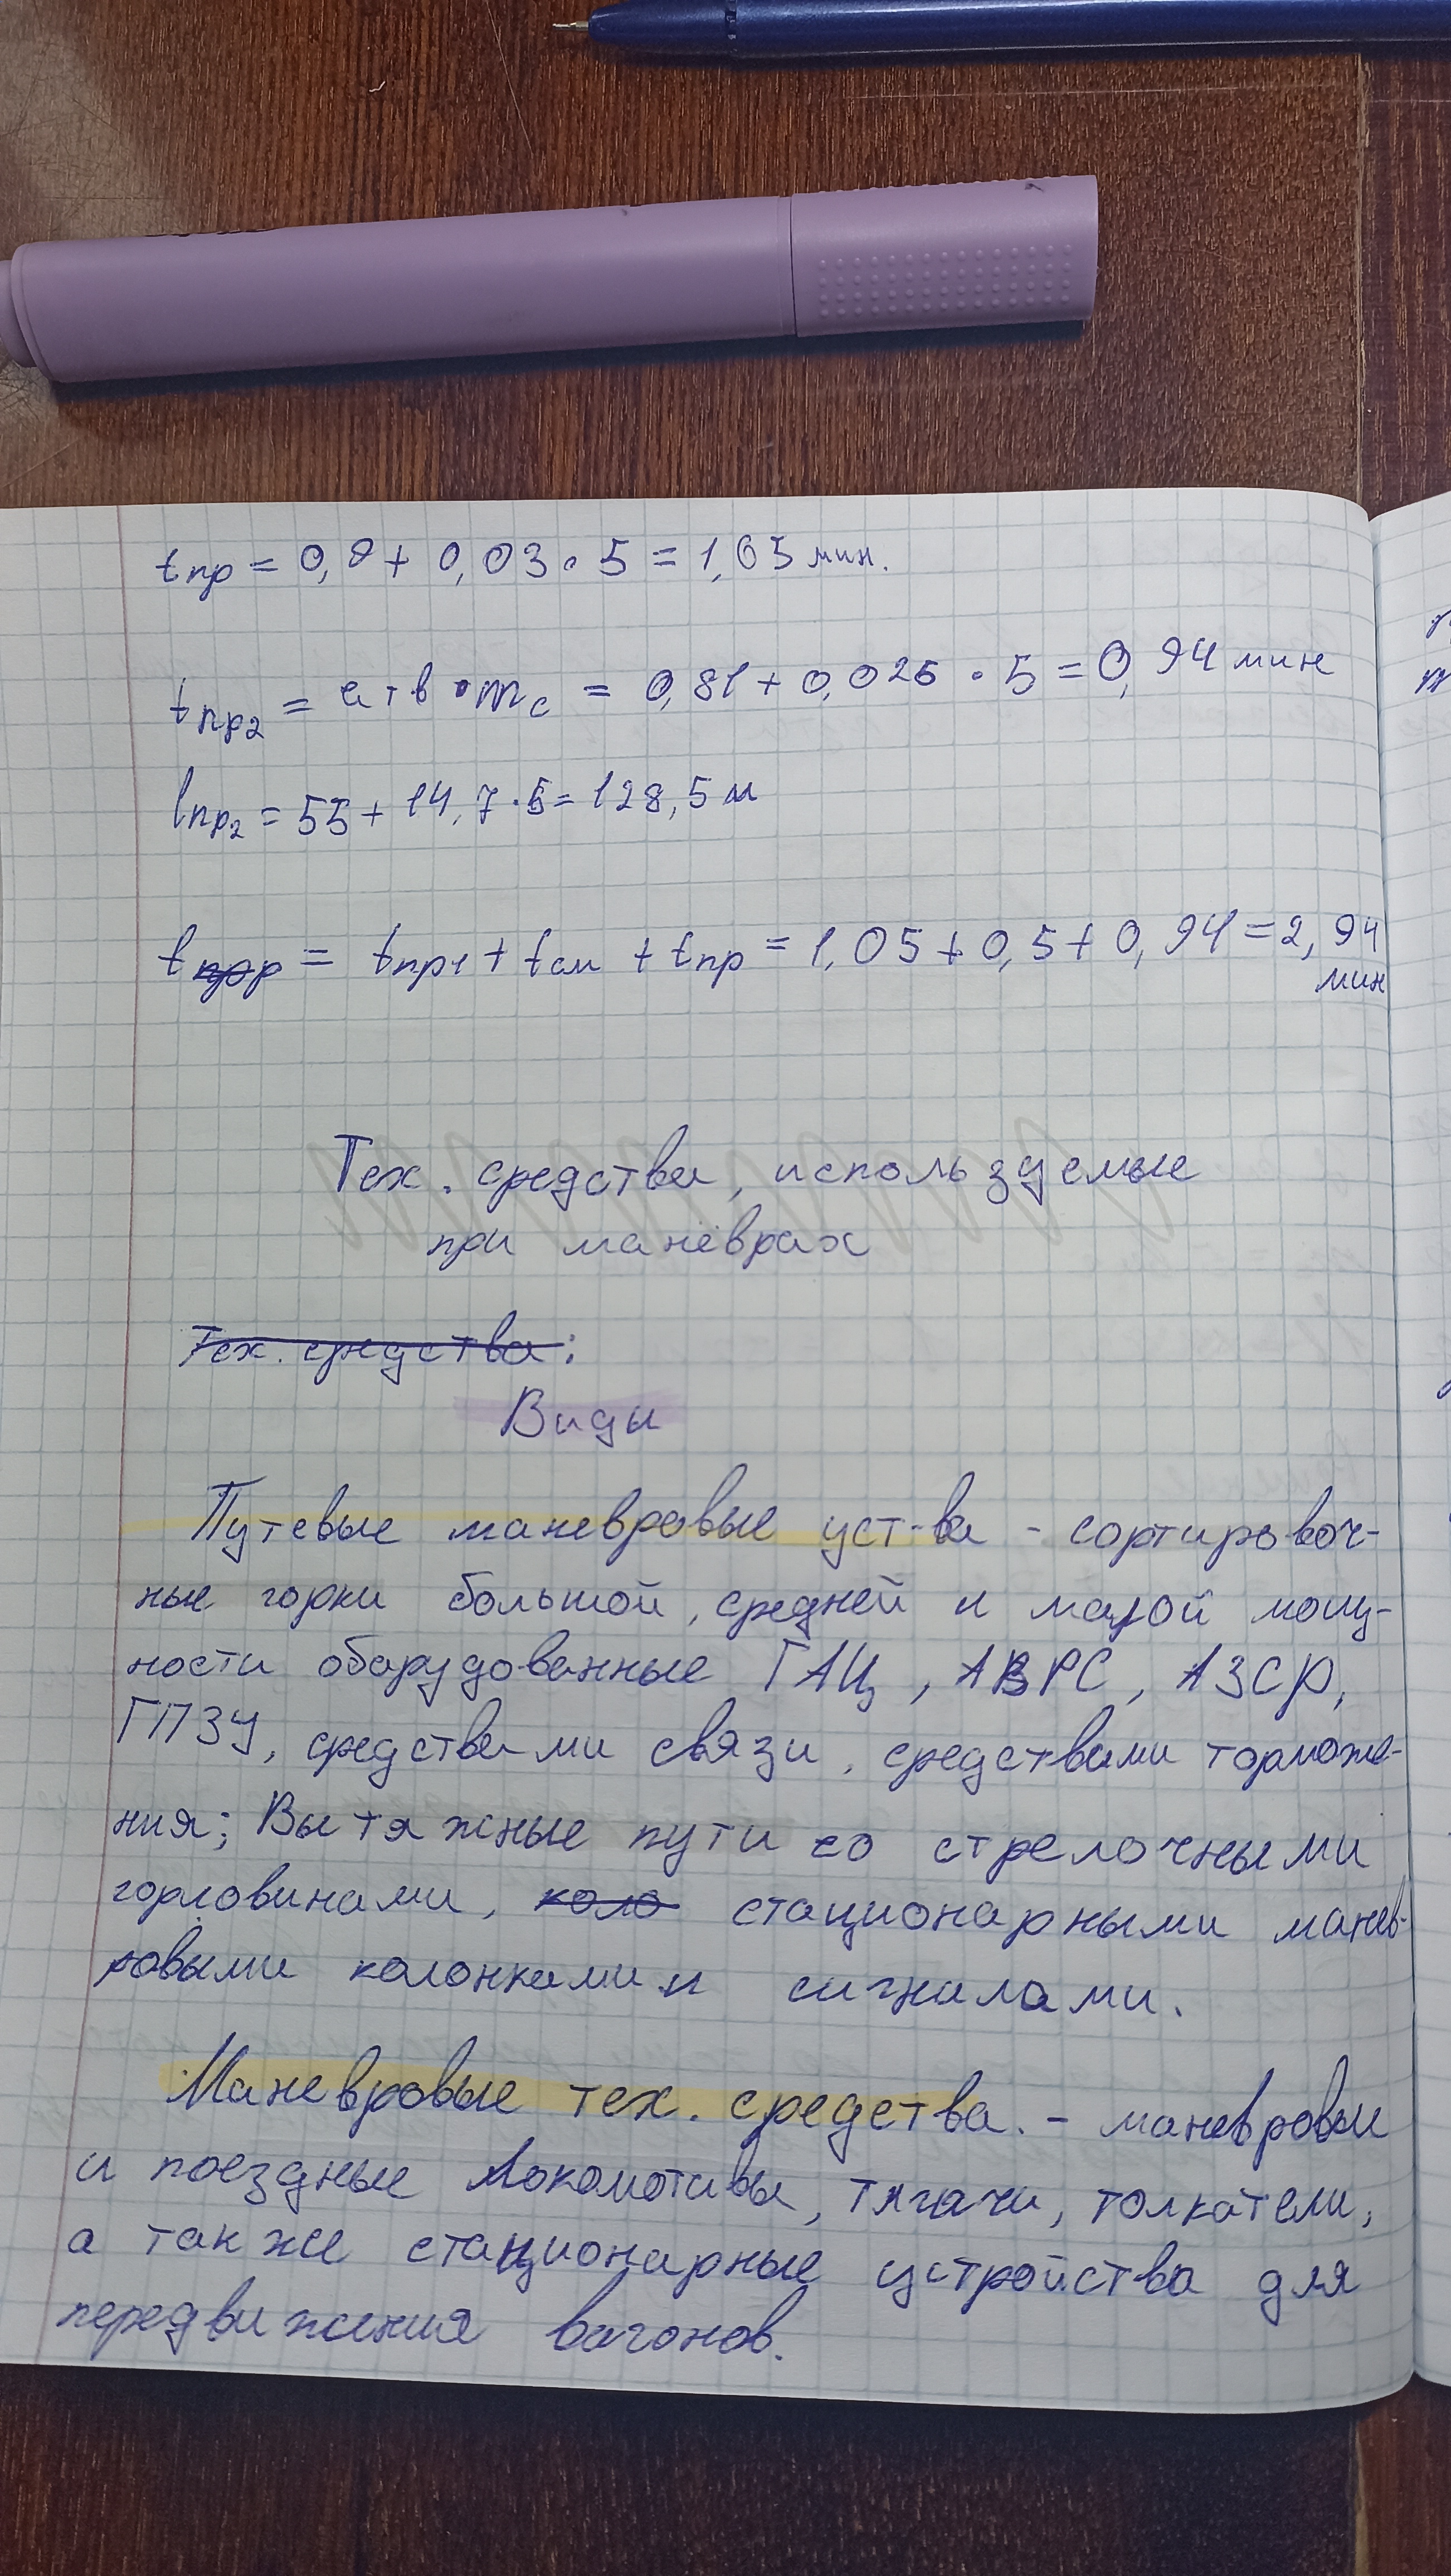 tпр = 0,9 + 0,03 • 5 = 1,05 мин.
tпр2 = а+в•mс = 0,81 + 0,026 • 5 = 0,94 мин
lпр2 = 55 + 14,7 • 5 = 128,5 м
t = tпр1 + tсм + tпр = 1,05 + 0,5 + 0,94 = 2,94
мин
Тех. средства, используемые
при манёврах
Тех. средства:
Виды
Путевые маневровые уст-ва - сортировоч-
ные горки большой, средней и малой мощ-
ности оборудованные ГАЦ, АВРС, АЗСР,
ГПЗУ, средствами связи, средствами торможе-
ния; Вытяжные пути со стрелочными
горловинами, коло стационарными манев-
ровыми колонками и сигналами.
Маневровые тех. средства. - маневровые
и поездные локомотивы, тягачи, толкатели,
а также стационарные устройства для
передвижения вагонов.